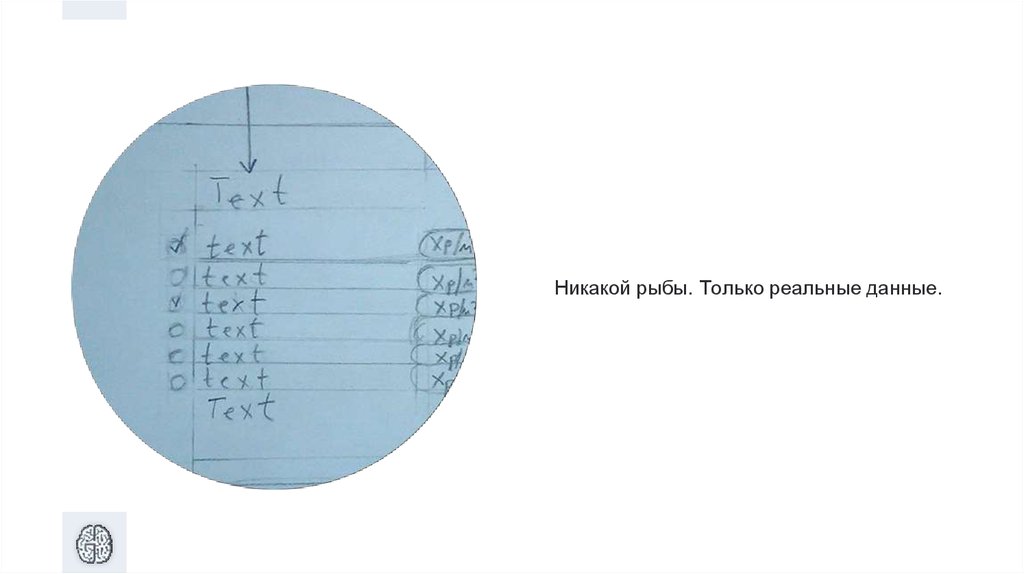 Text
text
text
text
text
text
text
Text
Никакой рыбы. Только реальные данные.